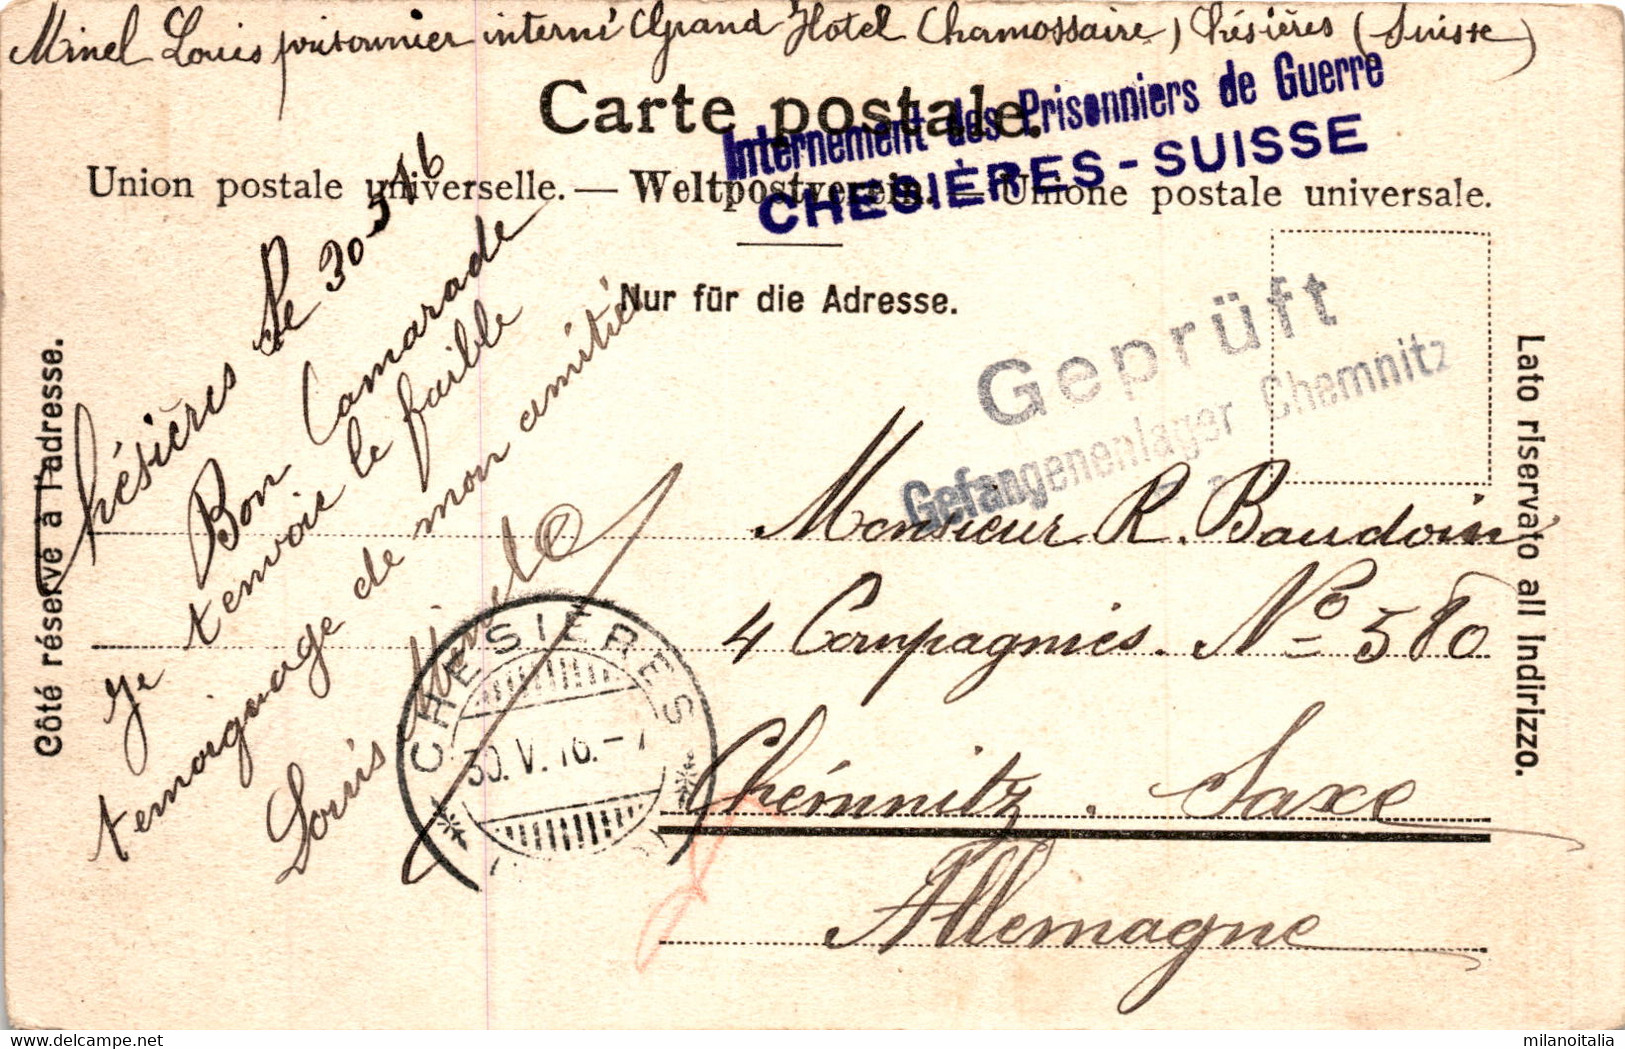 Minel Louis prisonnier interné (Grand Hotel Chamossaire) Chésières (Suisse)
Carte postale.
Internement des Prisonniers de Guerre
CHESIÈRES - SUISSE
Union postale universelle. — Weltpostverein. — Unione postale universale.
Nur für die Adresse.
Côté réservé à l'adresse.
Lato riservato all Indirizzo.
Geprüft
Gefangenenlager Chemnitz
Chésières le 30-5-16
Bon Camarade
Je t'envoie le faible
temoignage de mon amitié
Louis Minel
CHESIÈRES
30.V.16.-7
Monsieur R. Baudoin
4 Compagnies. No 580
Chémnitz. Saxe
Allemagne
milanoitalia